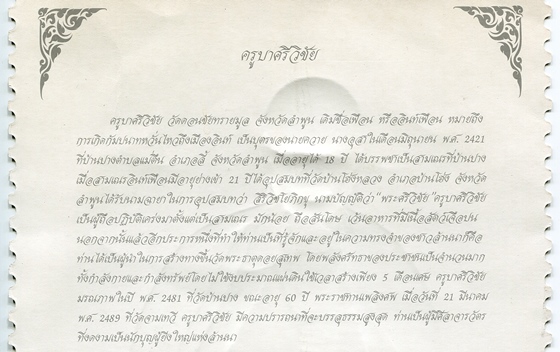 ครูบาศรีวิชัย
ครูบาศรีวิชัย วัดดอนชัยทรายมูล จังหวัดลำพูน เดิมชื่อเฟือน หรืออินท์เฟือน หมายถึง
การเกิดกัมปนาทหวั่นไหวถึงเมืองอินท์ เป็นบุตรของนายควาย นางอุสาในเดือนมิถุนายน พ.ศ. 2421
ที่บ้านปางตำบลแม่ตืน อำเภอลี้ จังหวัดลำพูน เมื่ออายุได้ 18 ปี ได้บรรพชาเป็นสามเณรที่บ้านปาง
เมื่อสามเณรอินท์เฟือนมีอายุย่างเข้า 21 ปีได้อุปสมบทที่วัดบ้านโฮ่งหลวง อำเภอบ้านโฮ่ง จังหวัด
ลำพูนได้รับนามฉายาในการอุปสมบทว่า สิริวิชโยภิกขุ นามบัญญัติว่า "พระศรีวิชัย" ครูบาศรีวิชัย
เป็นผู้ถือปฏิบัติเคร่งมาตั้งแต่เป็นสามเณร มักน้อย ถือสันโดษ เว้นอาหารที่มีเนื้อสัตว์เจือปน
นอกจากนั้นแล้วอีกประการหนึ่งที่ทำให้ท่านเป็นที่รู้จักและอยู่ในความทรงจำของชาวล้านนาก็คือ
ท่านได้เป็นผู้นำในการสร้างทางขึ้นวัดพระธาตุดอยสุเทพ โดยพลังศรัทธาของประชาชนเป็นจำนวนมาก
ทั้งกำลังกายและกำลังทรัพย์โดยไม่ใช้งบประมาณแผ่นดินใช้เวลาสร้างเพียง 5 เดือนเศษ ครูบาศรีวิชัย
มรณภาพในปี พ.ศ. 2481 ที่วัดบ้านปาง ขณะอายุ 60 ปี พระราชทานเพลิงศพ เมื่อวันที่ 21 มีนาคม
พ.ศ. 2489 ที่วัดจามเทวี ครูบาศรีวิชัย มีความปรารถนาที่จะบรรลุธรรมสูงสุด ท่านเป็นผู้มีศีลาจารวัตร
ที่งดงามเป็นนักบุญผู้ยิ่งใหญ่แห่งล้านนา